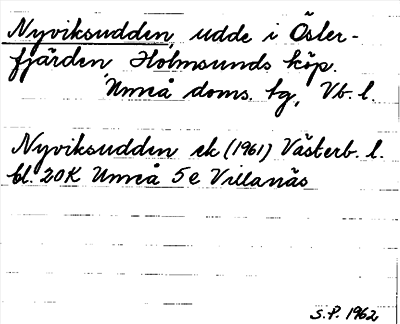 Nyviksudden, udde i Öster-
fjärden Holmsunds köp.
Umeå doms. tg, Vb. l.
Nyviksudden ek (1961) Västerb. l.
bl. 20K Umeå 5e Villanäs
S.P. 1962